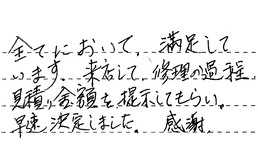 全てにおいて、満足して
います。来店して、修理の過程
見積り金額を提示してもらい。
早速決定しました。感謝